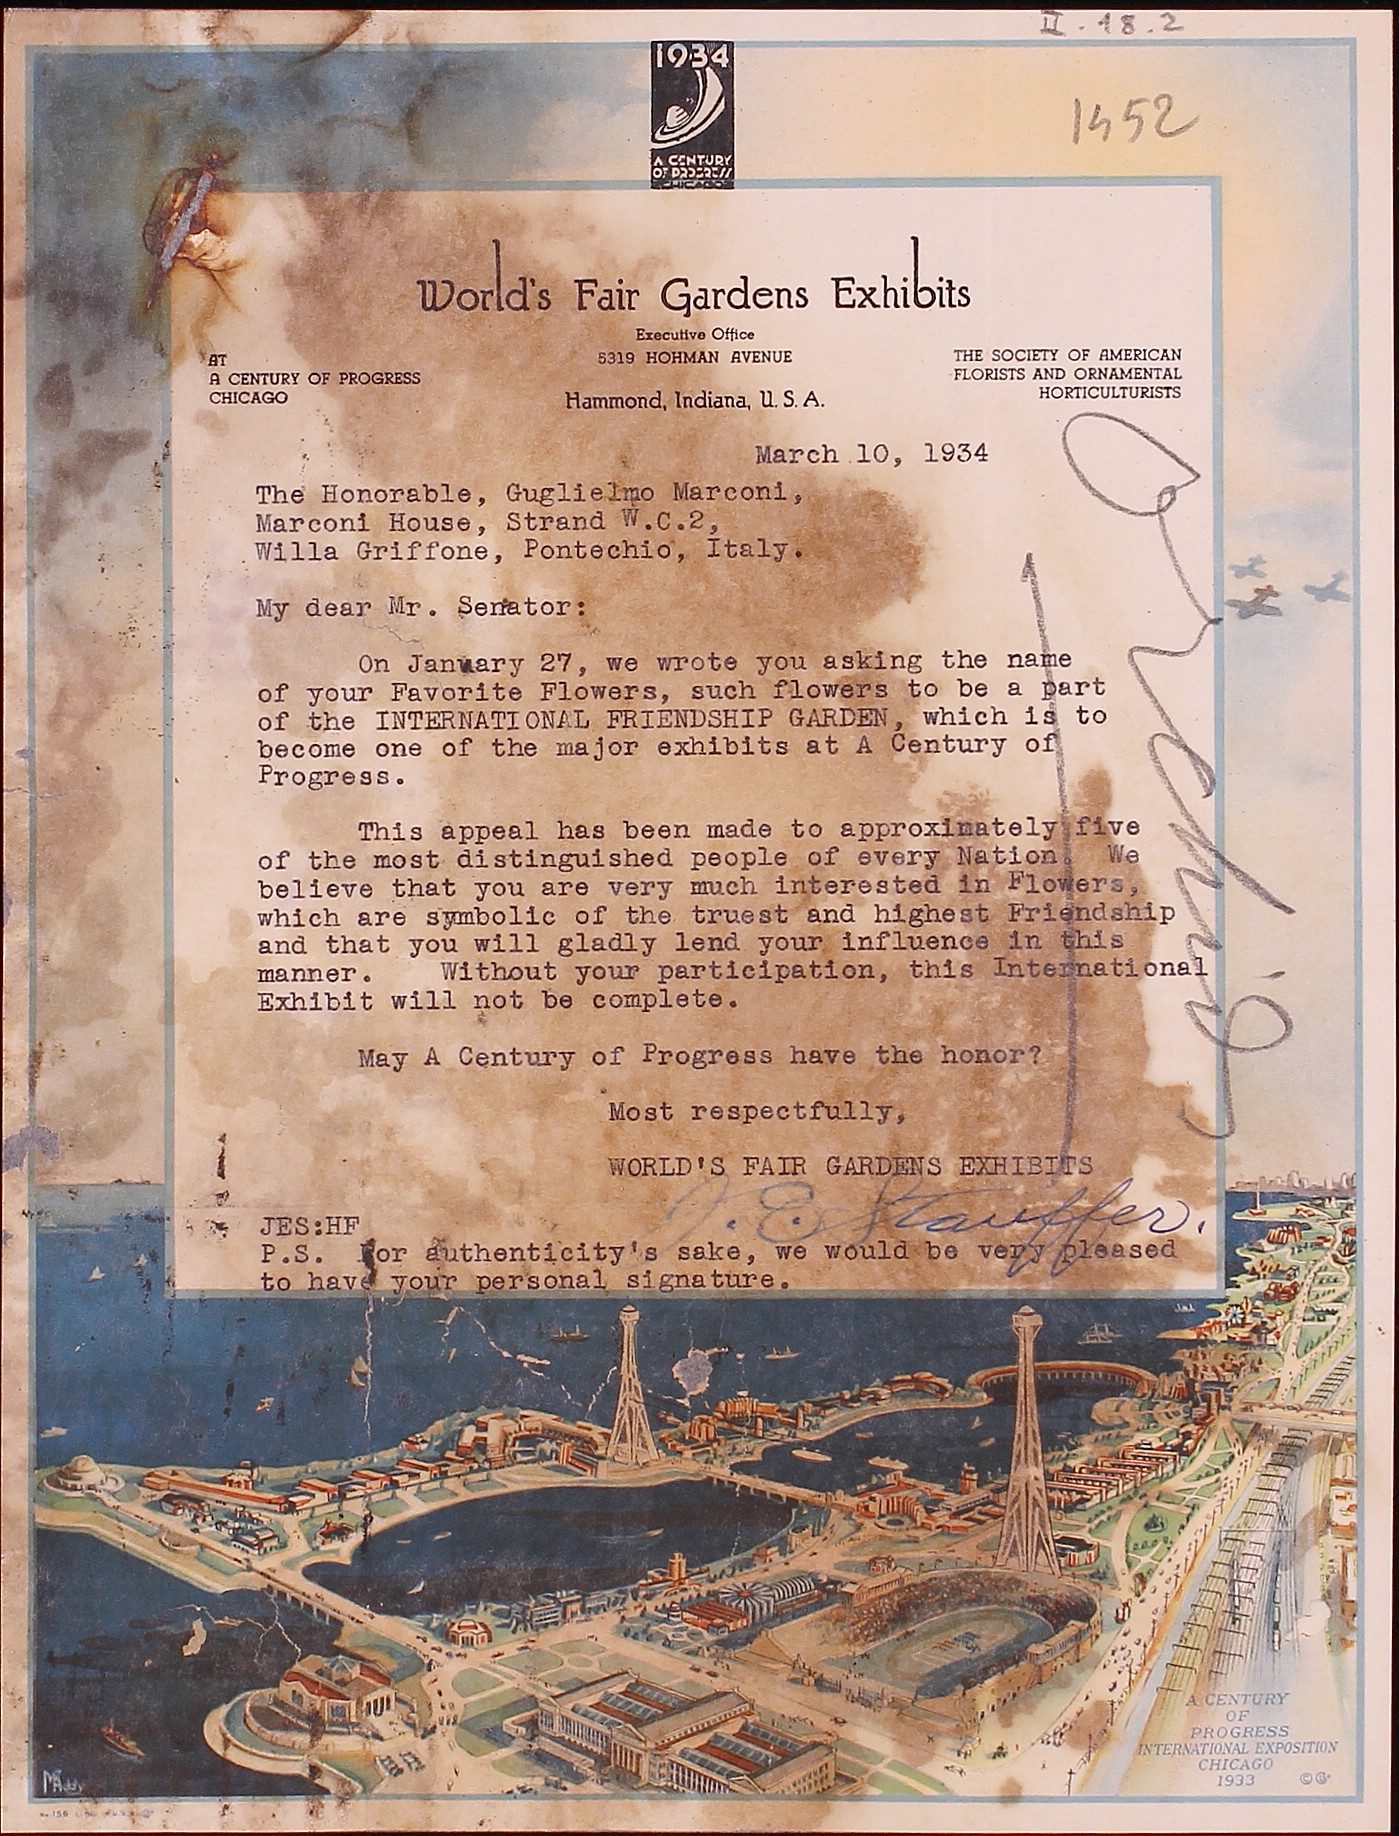 II-18.2
1934
A CENTURY
OF PROGRESS
CHICAGO
1452
World's Fair Gardens Exhibits
Executive Office
5319 HOHMAN AVENUE
Hammond, Indiana, U. S. A.
AT
A CENTURY OF PROGRESS
CHICAGO
THE SOCIETY OF AMERICAN
FLORISTS AND ORNAMENTAL
HORTICULTURISTS
March 10, 1934
The Honorable, Guglielmo Marconi,
Marconi House, Strand W.C.2,
Willa Griffone, Pontechio, Italy.
My dear Mr. Senator:
On January 27, we wrote you asking the name
of your Favorite Flowers, such flowers to be a part
of the INTERNATIONAL FRIENDSHIP GARDEN, which is to
become one of the major exhibits at A Century of
Progress.
This appeal has been made to approximately five
of the most distinguished people of every Nation. We
believe that you are very much interested in Flowers,
which are symbolic of the truest and highest Friendship
and that you will gladly lend your influence in this
manner. Without your participation, this International
Exhibit will not be complete.
May A Century of Progress have the honor?
Most respectfully,
WORLD'S FAIR GARDENS EXHIBITS
J. E. Stauffer.
JES:HF
P.S. For authenticity's sake, we would be very pleased
to have your personal signature.
A CENTURY
OF
PROGRESS
INTERNATIONAL EXPOSITION
CHICAGO
1933
No. 156